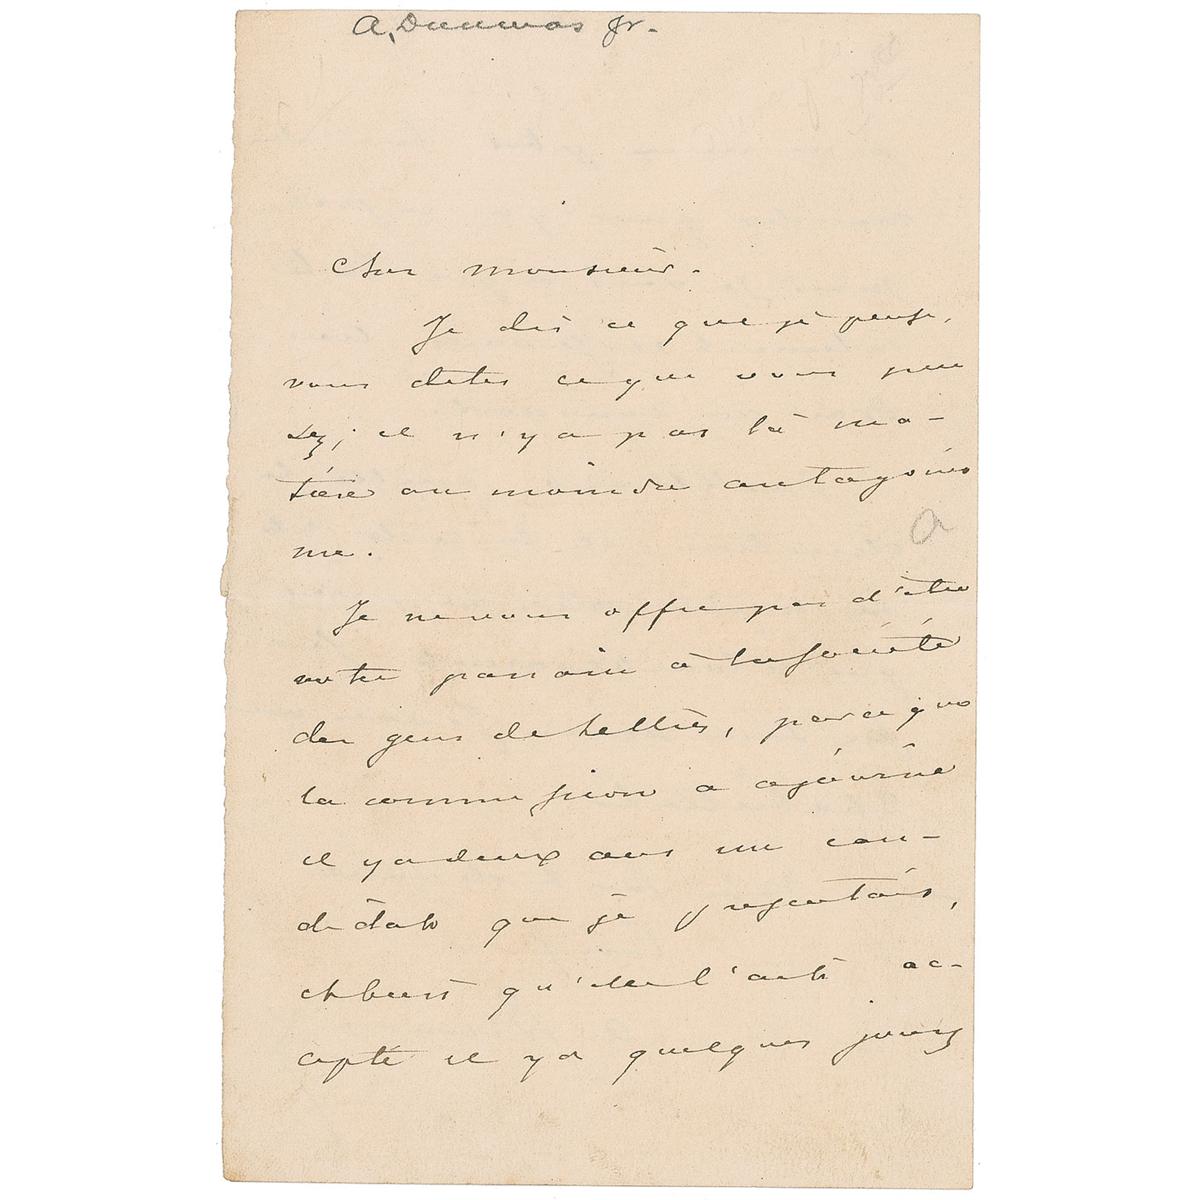 A. Dumas Jr.
Cher monsieur.
Je dis ce que je pense,
vous dites ce que vous pen
sez; il n'y a pas là ma-
tière au moindre antagonis
me.
a
Je ne vous offre pas d'être
votre parrain à la Société
des gens de lettres, parce que
la commission a ajourné
il y a deux ans un can-
didat que je présentais,
qu'elle l'ait ac-
cepté il y a quelques jours